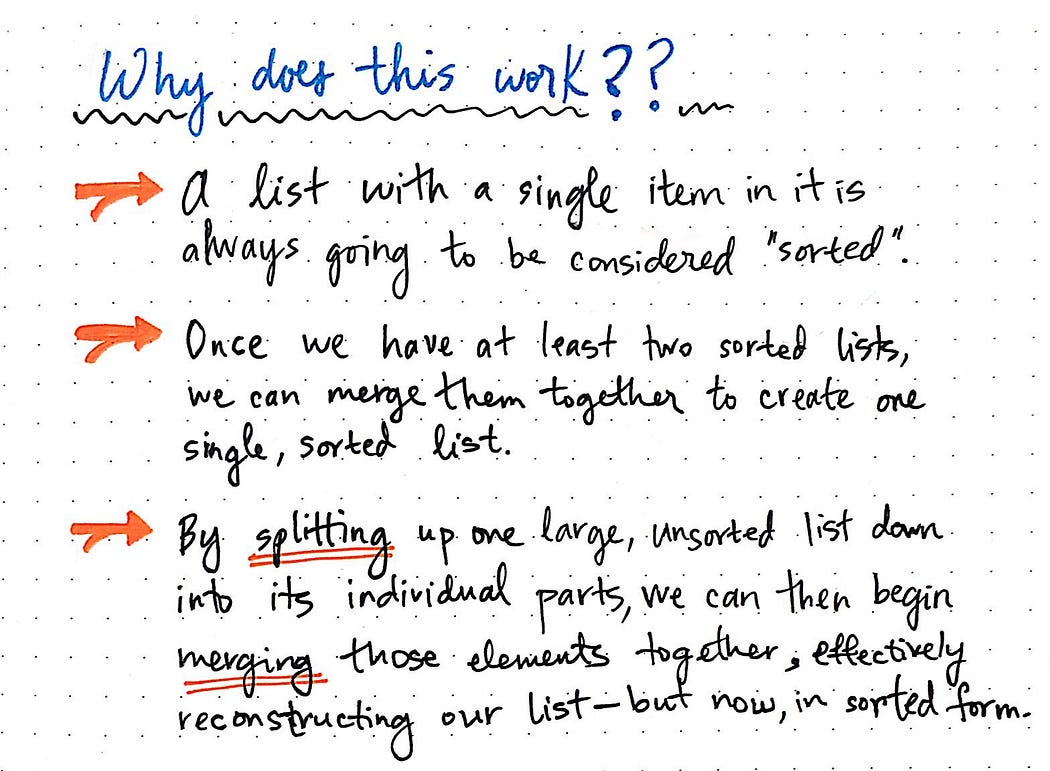 Why does this work??
A list with a single item in it is
always going to be considered "sorted".
Once we have at least two sorted lists,
we can merge them together to create one
single, sorted list.
By splitting up one large, unsorted list down
into its individual parts, we can then begin
merging those elements together, effectively
reconstructing our list—but now, in sorted form.